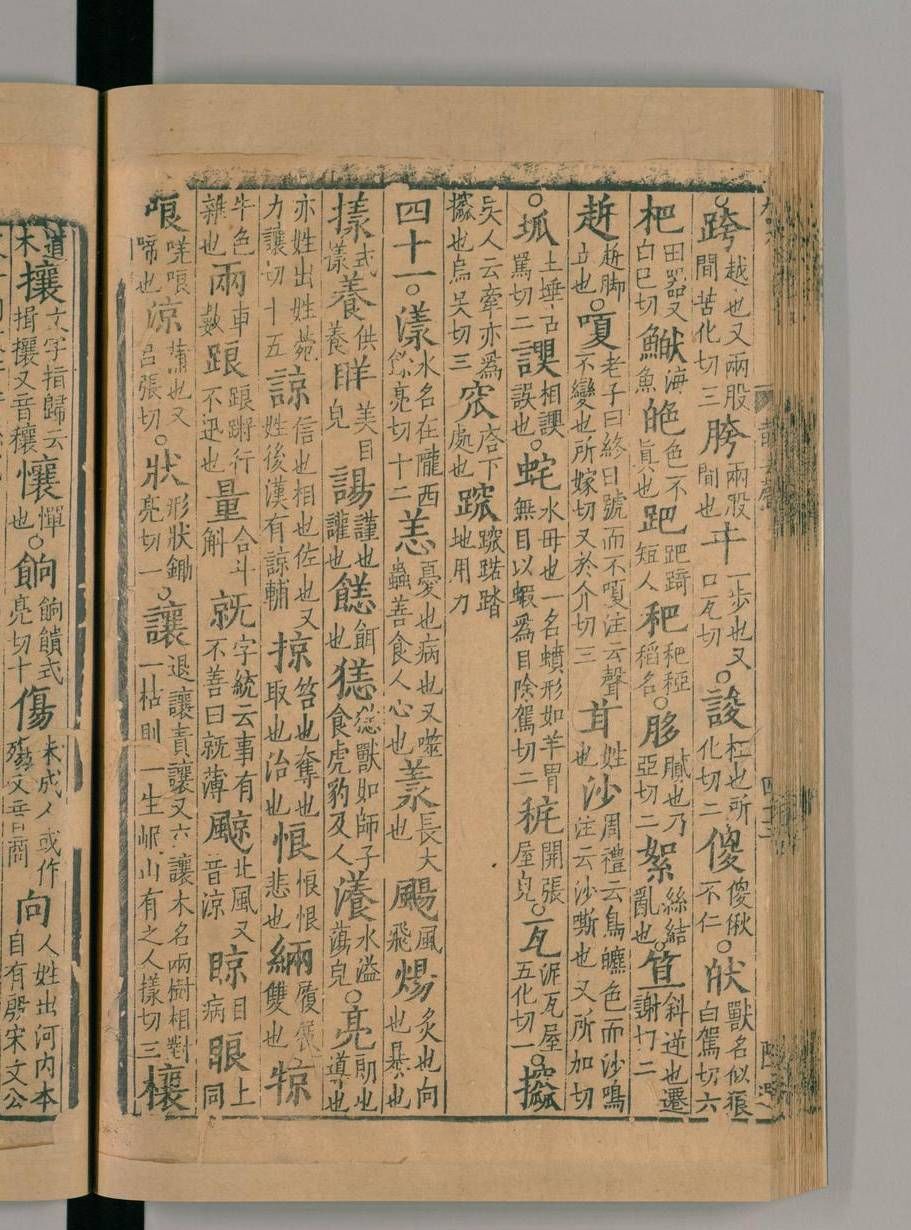 跨越也又兩股間苦化切三胯兩股間也㐄一歩也又口瓦切○誜枉也所化切二傻傻偢不仁○㹀獸名似狼白駕切六
杷田器又白巴切鮁海魚皅色不真也跁跁踦短人䎱䎱稏稻名○䏧膩也乃亞切二絮絲結亂也○笡斜逆也遷謝切二
䞣䞣脚立也○嗄老子曰終日號而不嗄注云聲不變也所嫁切又於介切三苷姓也沙周禮云鳥皫色而沙鳴注云沙嘶也又所加切
○坬上埵古罵切二諣相諣誤也○蛇水母也一名蟦形如羊胃無目以蝦爲目除駕切二䅊開張屋皃○瓦泥瓦屋五化切一○攨
吴人云牽亦爲攨也烏吴切三窊窊下處也蹤蹤踏地用力
四十一○漾水名在隴西餘亮切十二恙憂也病也又噬蟲善食人心也羕長大也颺風飛煬炙也向也暴也
㨾式㨾養供養眻美目皃諹讙也讙也𩜾餌也㺊㺊獸如師子食虎豹及人瀁水溢蕩皃○亮朗也導也
亦姓出姓苑力讓切十五諒信也相也佐也又姓後漢有諒輔掠笞也奪也取也治也悢悢悢悲也緉履緉雙也㹁
牛色雜也兩車數踉踉蹡行不迅也量合斗斛就字統云事有不善曰就薄䬅北風又音涼晾目病䀶上同
哴嗟哴啼也涼薄也又呂張切○狀形狀鋤亮切一○讓退讓責讓又六讓木名兩樹相對一枯則一生岷山有之人樣切三欀
道木攘文字指歸云揖攘又音穰懹憚也○餉餉饋式亮切十傷未成人或作殤又音商向人姓出河内本自有殷宋文公